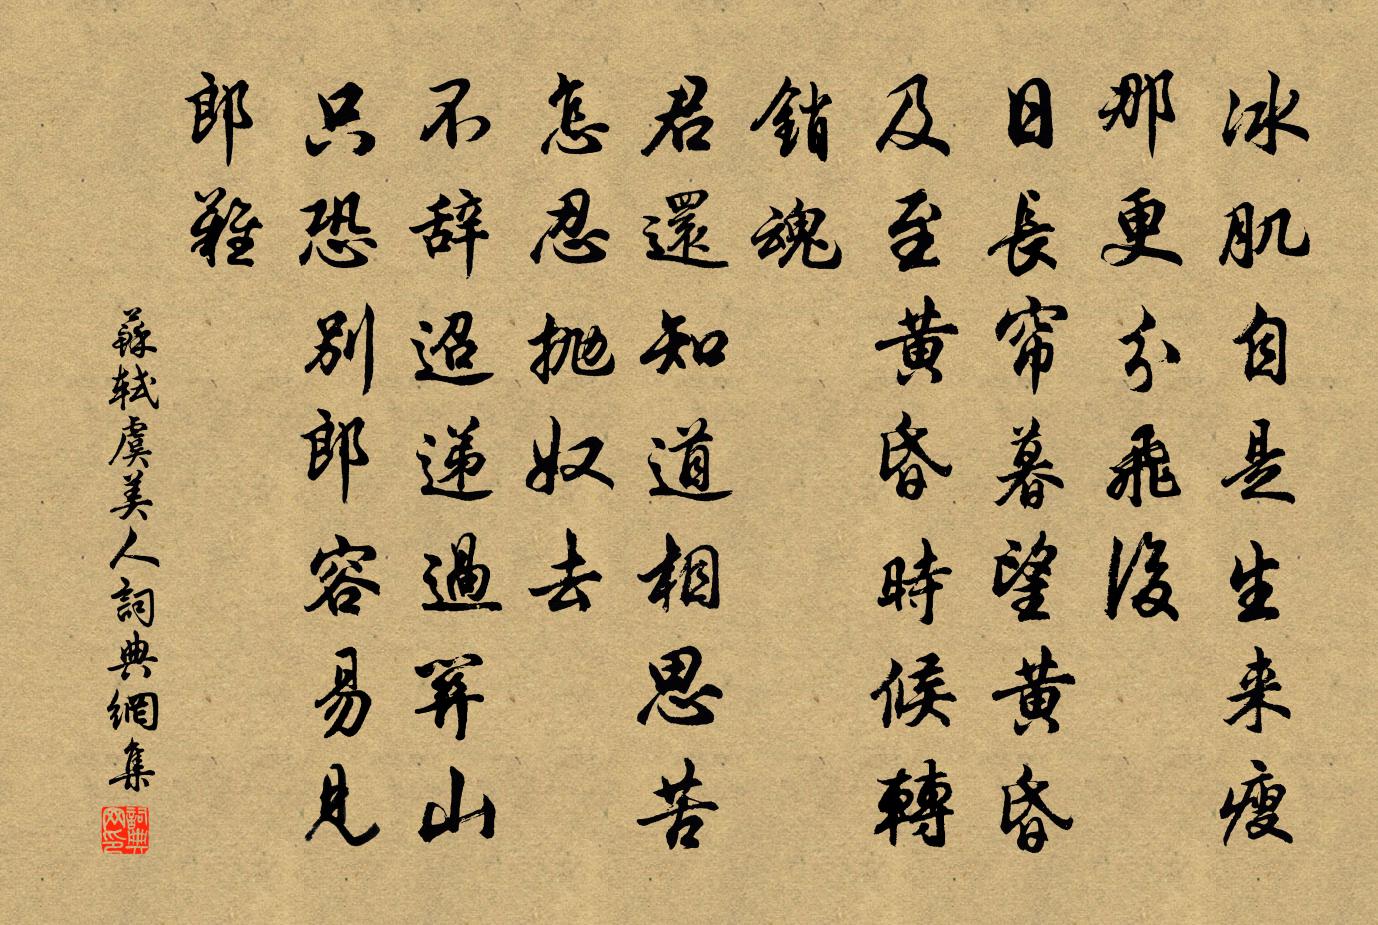 冰肌自是生来瘦
那更分飛後
日長帘暮望黄昏
及至黄昏時候轉
銷魂
君還知道相思苦
怎忍抛奴去
不辞迢递過関山
只恐别郎容易見
郎難
蘇軾虞美人詞典網集
詞典
网印